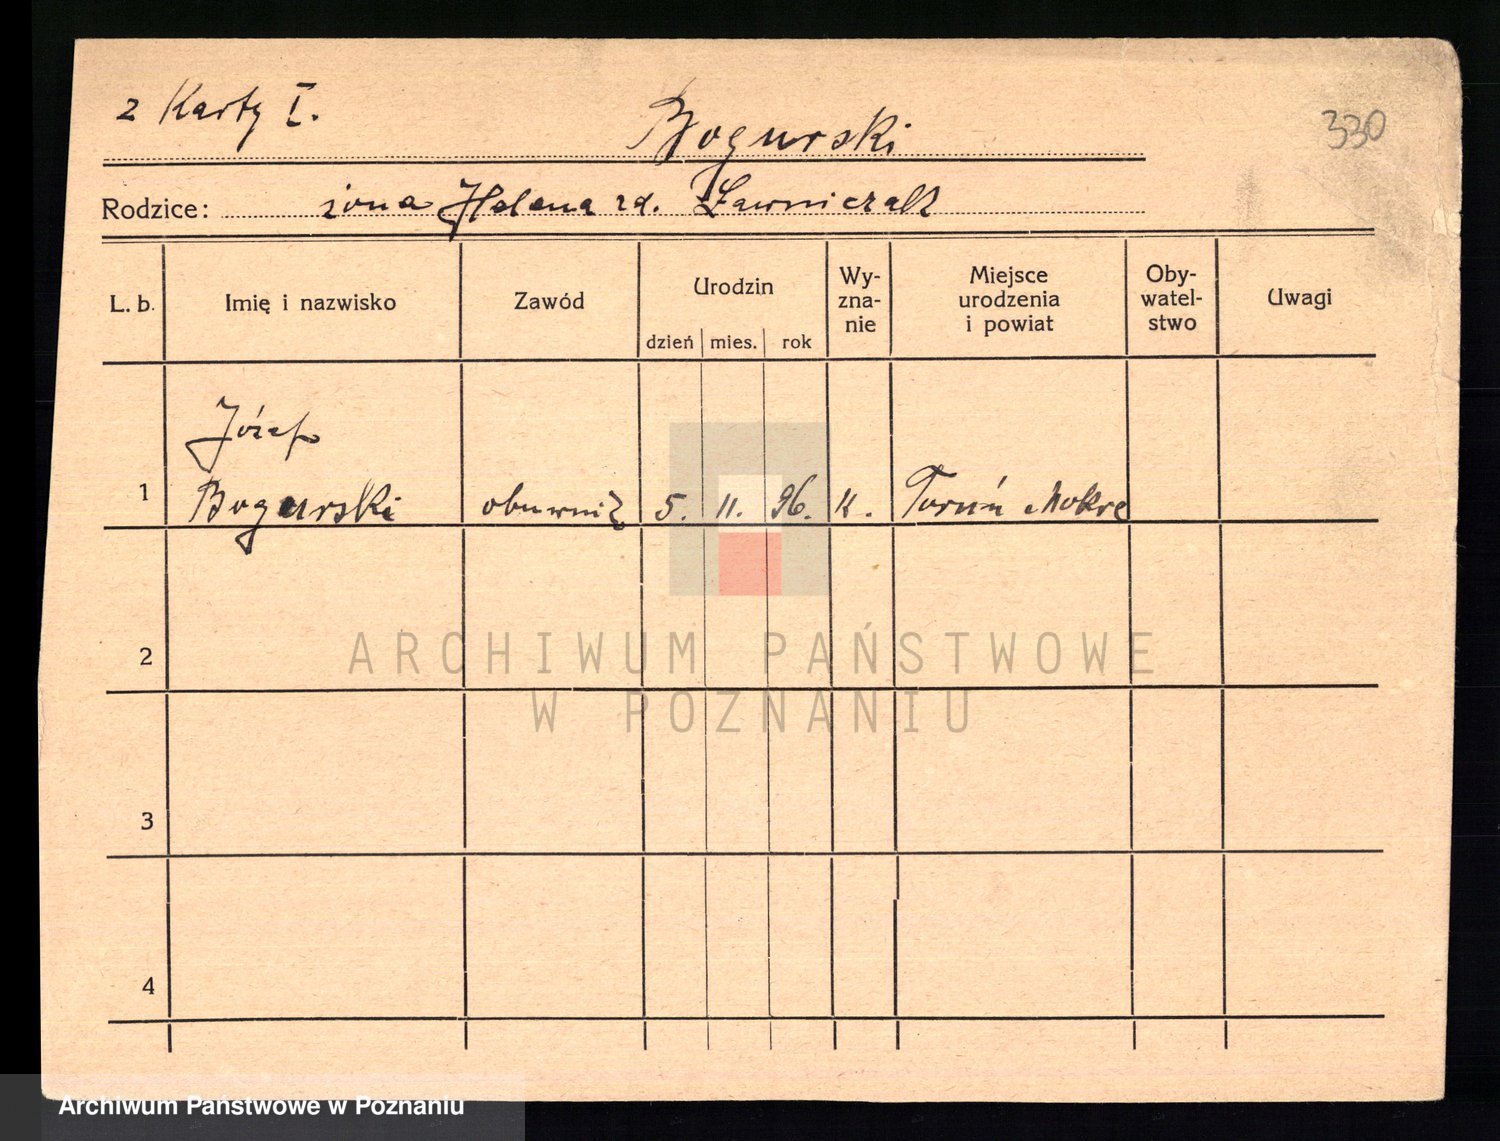 z Karty I.
Bogurski
330
Rodzice: żona Helena zd. Ławniczak
L. b.
Imię i nazwisko
Zawód
Urodzin
dzień mies. rok
Wy-
zna-
nie
Miejsce
urodzenia
i powiat
Oby-
watel-
stwo
Uwagi
Józef
1 Bogurski obuwnik 5. 11. 96. k. Toruń Mokre
2
3
4
ARCHIWUM PAŃSTWOWE
W POZNANIU
Archiwum Państwowe w Poznaniu